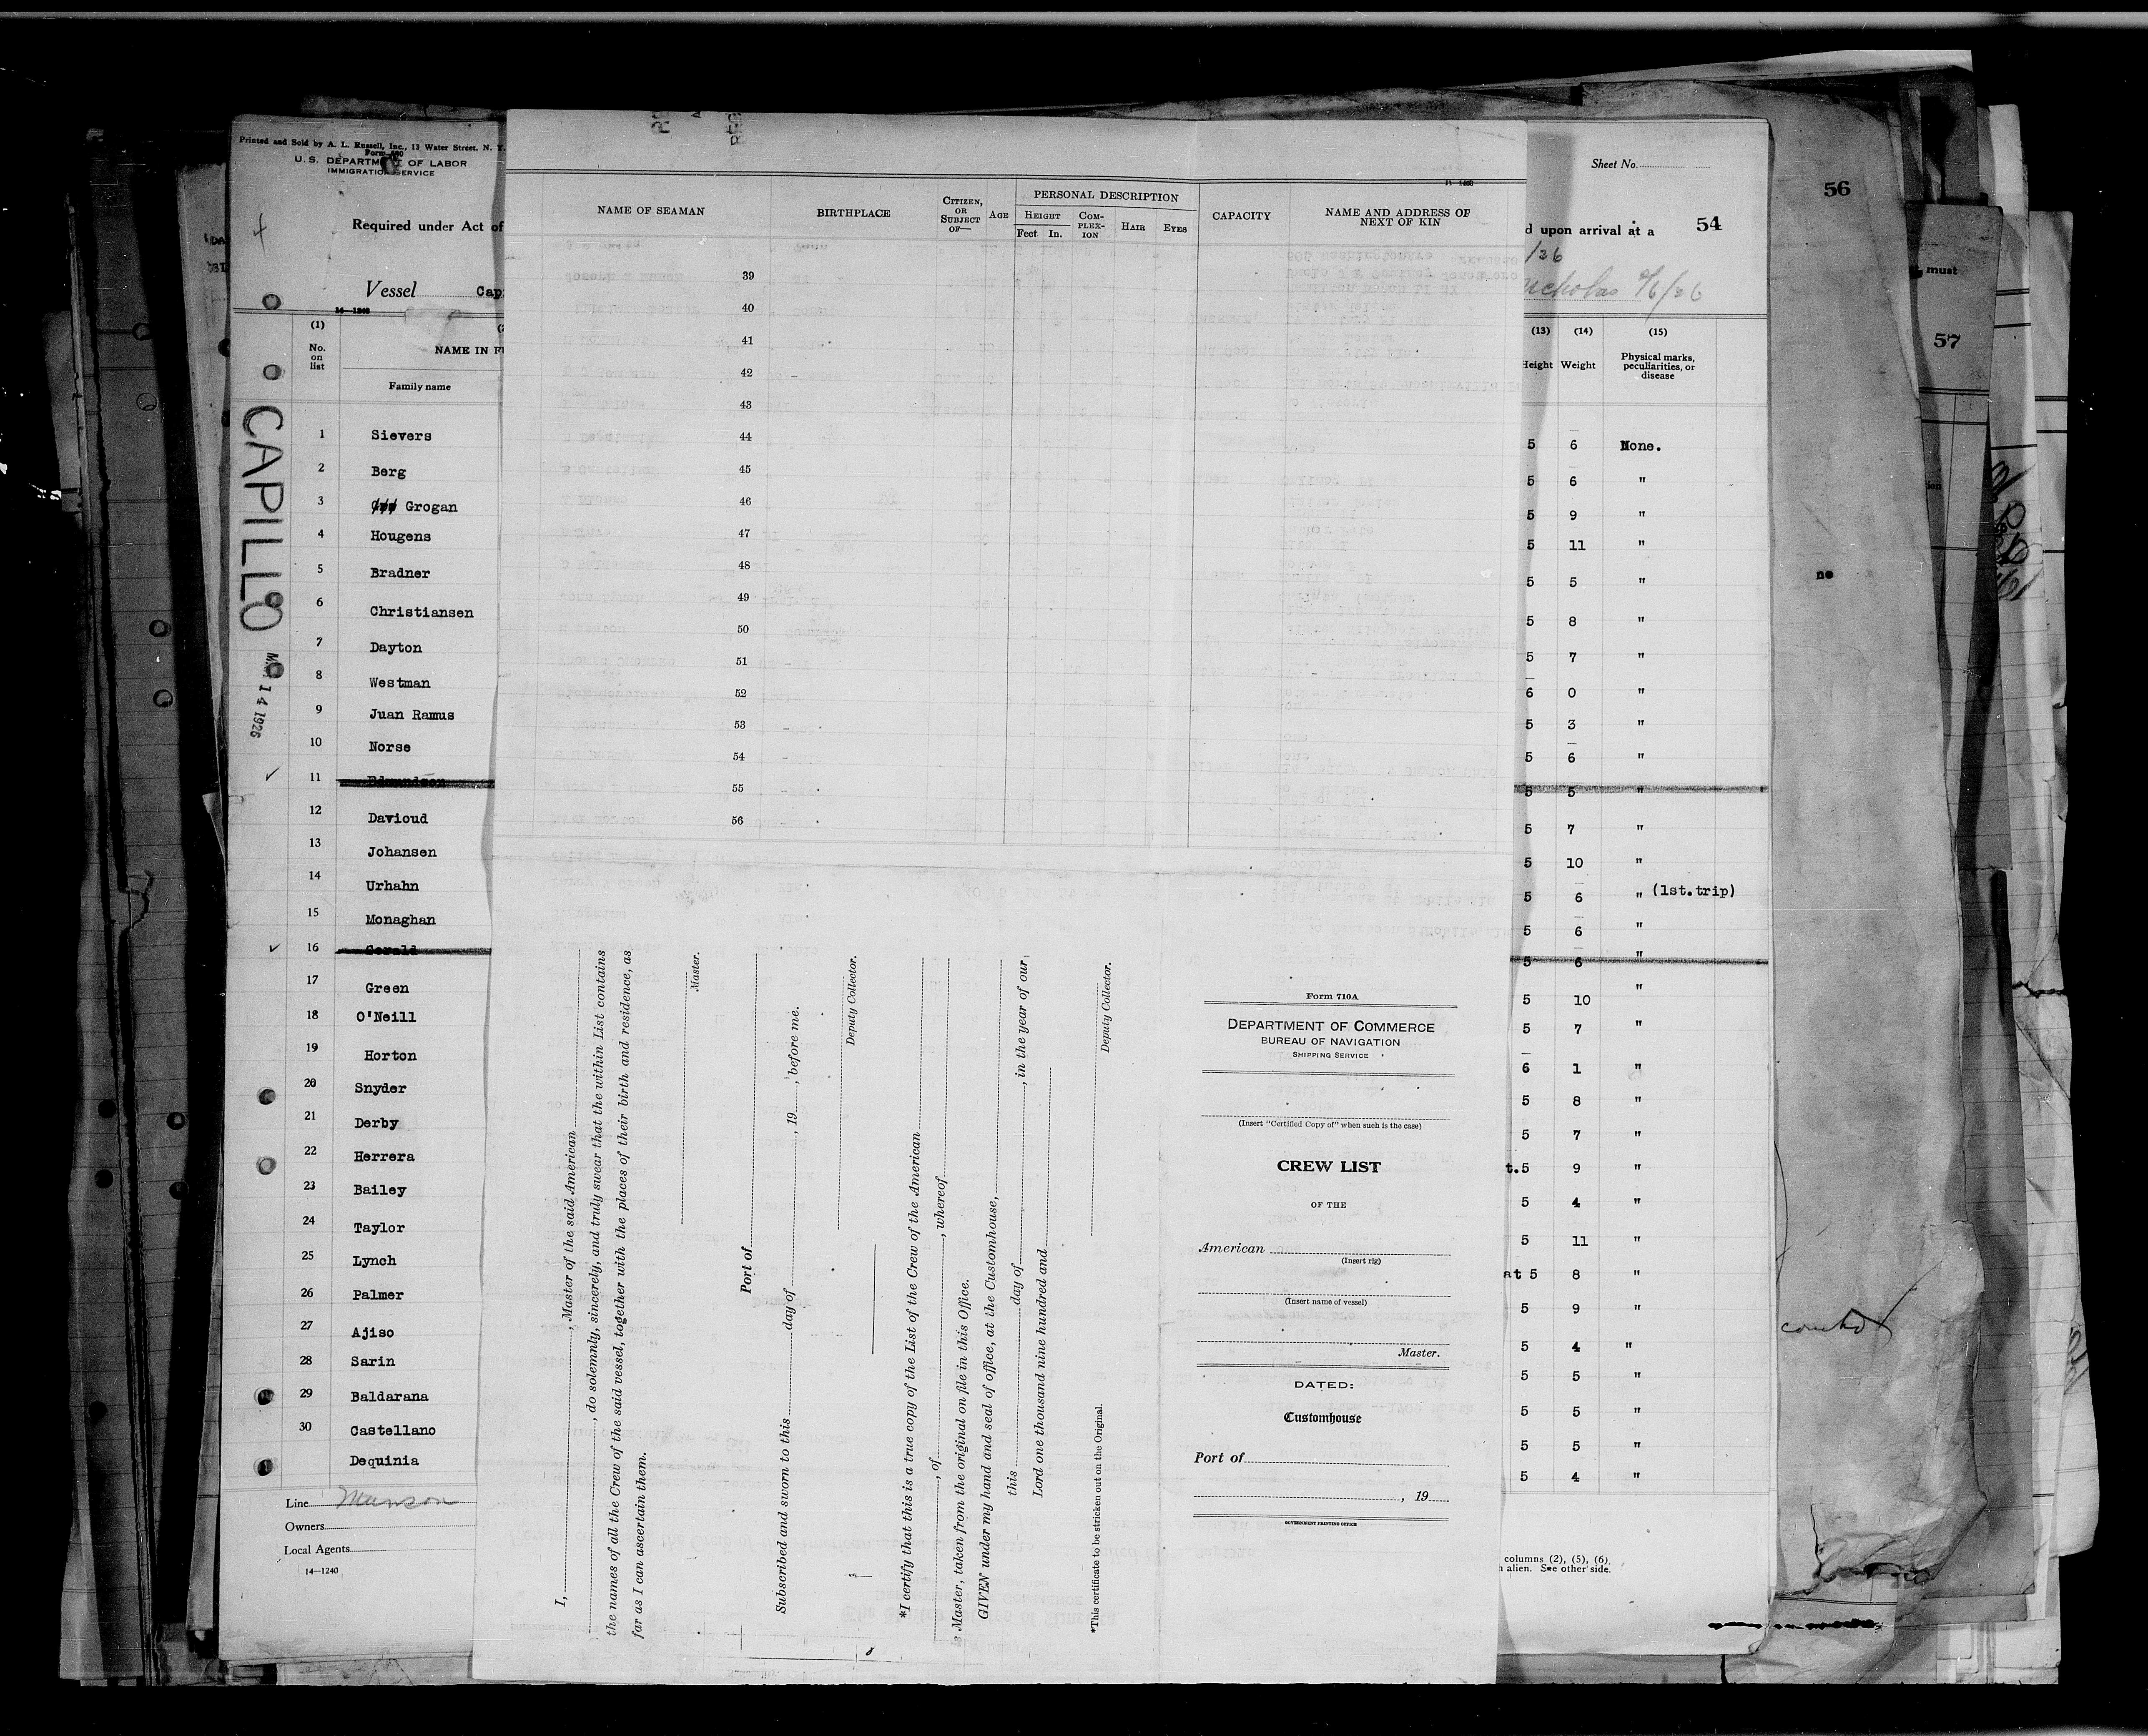 Printed and Sold by A. L. Russell, Inc., 13 Water Street, N. Y.
U. S. DEPARTMENT OF LABOR
IMMIGRATION SERVICE
Required under Act of
Vessel Cap
14—1240
(1)
No. on list
NAME IN F
Family name
CAPILLO
14 1926
1 Sievers
2 Berg
3 Grogan
4 Hougens
5 Bradner
6 Christiansen
7 Dayton
8 Westman
9 Juan Ramus
10 Norse
11 Edmundson
12 Davioud
13 Johansen
14 Urhahn
15 Monaghan
16 Gerald
17 Green
18 O'Neill
19 Horton
20 Snyder
21 Derby
22 Herrera
23 Bailey
24 Taylor
25 Lynch
26 Palmer
27 Ajiso
28 Sarin
29 Baldarana
30 Castellano
Dequinia
Line Munson
Owners
Local Agents
14—1240
NAME OF SEAMAN
BIRTHPLACE
CITIZEN, OR SUBJECT OF—
AGE
PERSONAL DESCRIPTION
HEIGHT
Feet In.
COMPLEXION
HAIR
EYES
CAPACITY
NAME AND ADDRESS OF NEXT OF KIN
39
40
41
42
43
44
45
46
47
48
49
50
51
52
53
54
55
56
I, , Master of the said American
, do solemnly, sincerely, and truly swear that the within List contains
the names of all the Crew of the said vessel, together with the places of their birth and residence, as
far as I can ascertain them.
Master.
Port of
Subscribed and sworn to this day of , 19 , before me.
Deputy Collector.
*I certify that this is a true copy of the List of the Crew of the American
, of , whereof
Master, taken from the original on file in this Office.
GIVEN under my hand and seal of office, at the Customhouse,
this day of , in the year of our
Lord one thousand nine hundred and
Deputy Collector.
*This certificate to be stricken out on the Original.
Form 710A
DEPARTMENT OF COMMERCE
BUREAU OF NAVIGATION
SHIPPING SERVICE
(Insert "Certified Copy of" when such is the case)
CREW LIST
OF THE
American
(Insert rig)
(Insert name of vessel)
Master.
DATED:
Customhouse
Port of
, 19
GOVERNMENT PRINTING OFFICE
Sheet No.
d upon arrival at a 54
/26
Nicholas
(13) (14) (15)
Height Weight Physical marks, peculiarities, or disease
5 6 None.
5 6 "
5 9 "
5 11 "
5 5 "
5 8 "
5 7 "
6 0 "
5 3 "
5 6 "
5 5 "
5 7 "
5 10 "
5 6 " (1st.trip)
5 6 "
5 6 "
5 10 "
5 7 "
6 1 "
5 8 "
5 7 "
t.5 9 "
5 4 "
5 11 "
at 5 8 "
5 9 "
5 4 "
5 5 "
5 5 "
5 5 "
5 4 "
columns (2), (5), (6).
alien. See other side.
56
must
57
ne